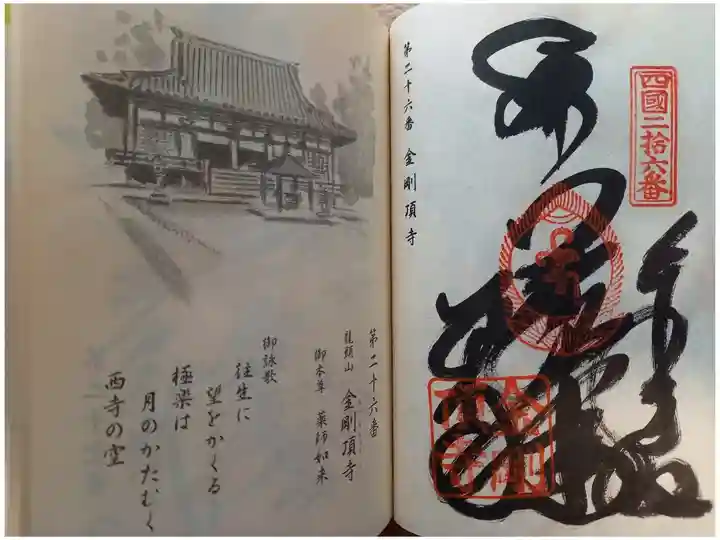 第二十六番
龍頭山 金剛頂寺
御本尊 薬師如来
御詠歌
往生に
望をかくる
極楽は
月のかたむく
西寺の空
第二十六番 金剛頂寺
四國二拾六番
金剛
頂寺